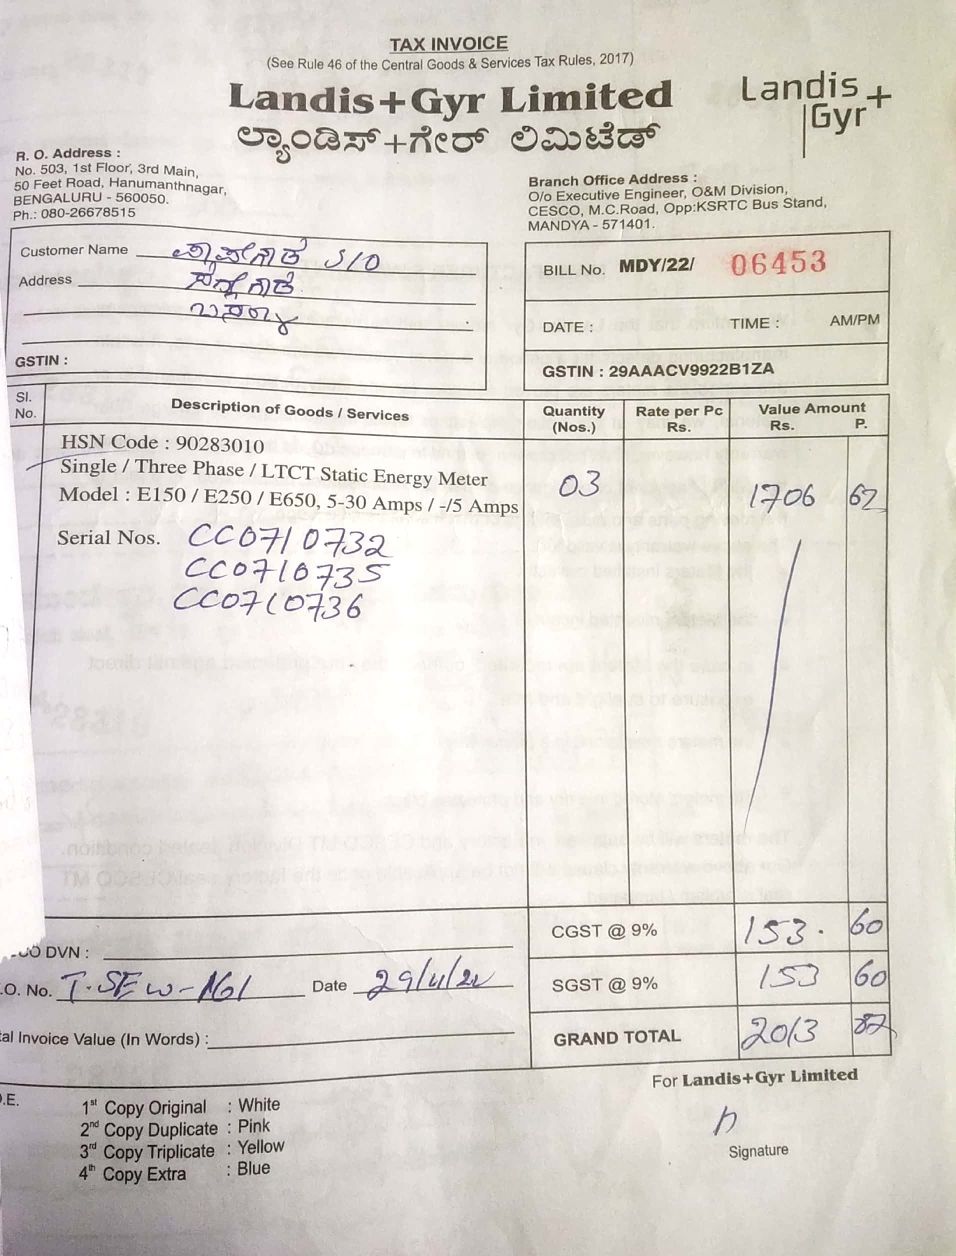 TAX INVOICE
(See Rule 46 of the Central Goods & Services Tax Rules, 2017)
Landis+Gyr Limited
ಲ್ಯಾಂಡಿಸ್+ಗೇರ್ ಲಿಮಿಟೆಡ್
Landis+
Gyr
R. O. Address :
No. 503, 1st Floor, 3rd Main,
50 Feet Road, Hanumanthnagar,
BENGALURU - 560050.
Ph.: 080-26678515
Branch Office Address :
O/o Executive Engineer, O&M Division,
CESCO, M.C.Road, Opp:KSRTC Bus Stand,
MANDYA - 571401.
Customer Name S/O
Address
GSTIN :
BILL No. MDY/22/ 06453
DATE : TIME : AM/PM
GSTIN : 29AAACV9922B1ZA
Sl. No. Description of Goods / Services Quantity (Nos.) Rate per Pc Rs. Value Amount Rs. P.
HSN Code : 90283010
Single / Three Phase / LTCT Static Energy Meter
Model : E150 / E250 / E650, 5-30 Amps / -/5 Amps 03 1706 62
Serial Nos. CC0710732
CC0710735
CC0710736
CGST @ 9% 153. 60
DVN :
SGST @ 9% 153 60
.O. No. Date
GRAND TOTAL 2013 82
al Invoice Value (In Words) :
For Landis+Gyr Limited
.E.
1st Copy Original : White
2nd Copy Duplicate : Pink
3rd Copy Triplicate : Yellow
4th Copy Extra : Blue
Signature